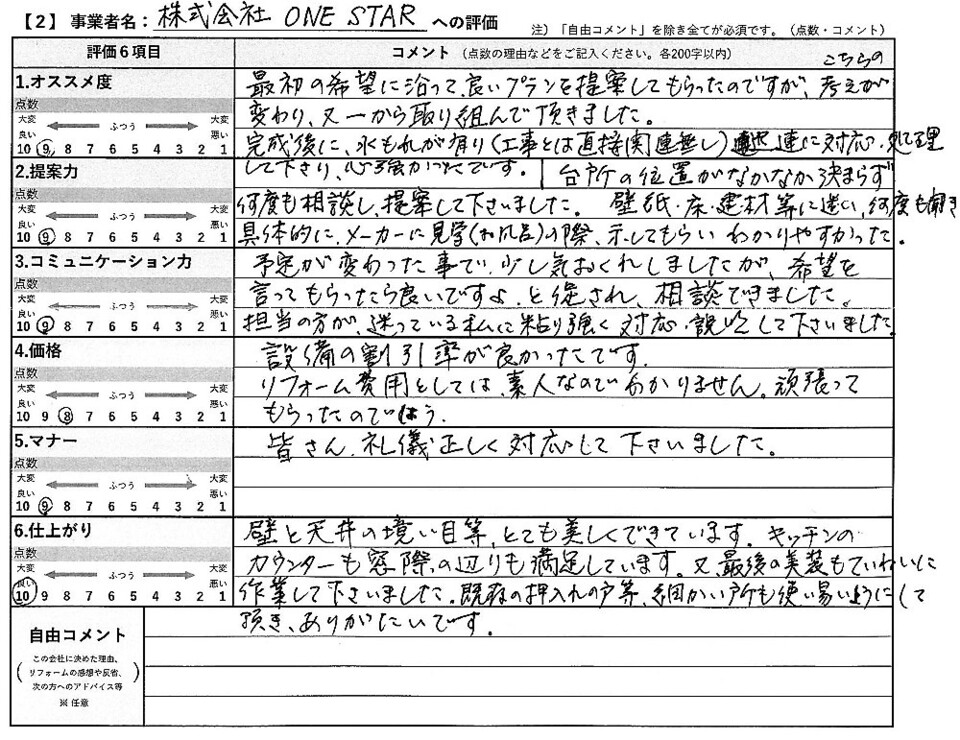 【2】事業者名：株式会社 ONE STAR への評価
注）「自由コメント」を除き全てが必須です。（点数・コメント）
評価6項目
コメント（点数の理由などをご記入ください。各200字以内）
1.オススメ度
点数
大変良い ふつう 大変悪い
10 9 8 7 6 5 4 3 2 1
こちらの
最初の希望に沿って、良いプランを提案してもらったのですが、考えが
変わり、又一から取り組んで頂きました。
完成後に、水もれが有り（工事とは直接関連無し）迅速に対応、処理
して下さり、心強かったです。
2.提案力
点数
大変良い ふつう 大変悪い
10 9 8 7 6 5 4 3 2 1
台所の位置がなかなか決まらず
何度も相談し、提案して下さいました。 壁紙・床・建材等に迷い、何度も聞き
具体的に、メーカーに見学（お風呂）の際、示してもらい わかりやすかった。
3.コミュニケーション力
点数
大変良い ふつう 大変悪い
10 9 8 7 6 5 4 3 2 1
予定が変わった事で、少し気おくれしましたが、希望を
言ってもらったら良いですよ、と促され、相談できました。
担当の方が、迷っている私に粘り強く対応・説明して下さいました。
4.価格
点数
大変良い ふつう 大変悪い
10 9 8 7 6 5 4 3 2 1
設備の割引率が良かったです。
リフォーム費用としては、素人なのでわかりません。頑張って
もらったのでは
5.マナー
点数
大変良い ふつう 大変悪い
10 9 8 7 6 5 4 3 2 1
皆さん、礼儀正しく対応して下さいました。
6.仕上がり
点数
大変良い ふつう 大変悪い
10 9 8 7 6 5 4 3 2 1
壁と天井の境い目等、とても美しくできています。キッチンの
カウンターも窓際の辺りも満足しています。又、最後の美装もていねいに
作業して下さいました。既存の押入れの戸等、細かい所も使い易いようにして
頂き、ありがたいです。
自由コメント
（この会社に決めた理由、
リフォームの感想や反省、
次の方へのアドバイス等）
※任意